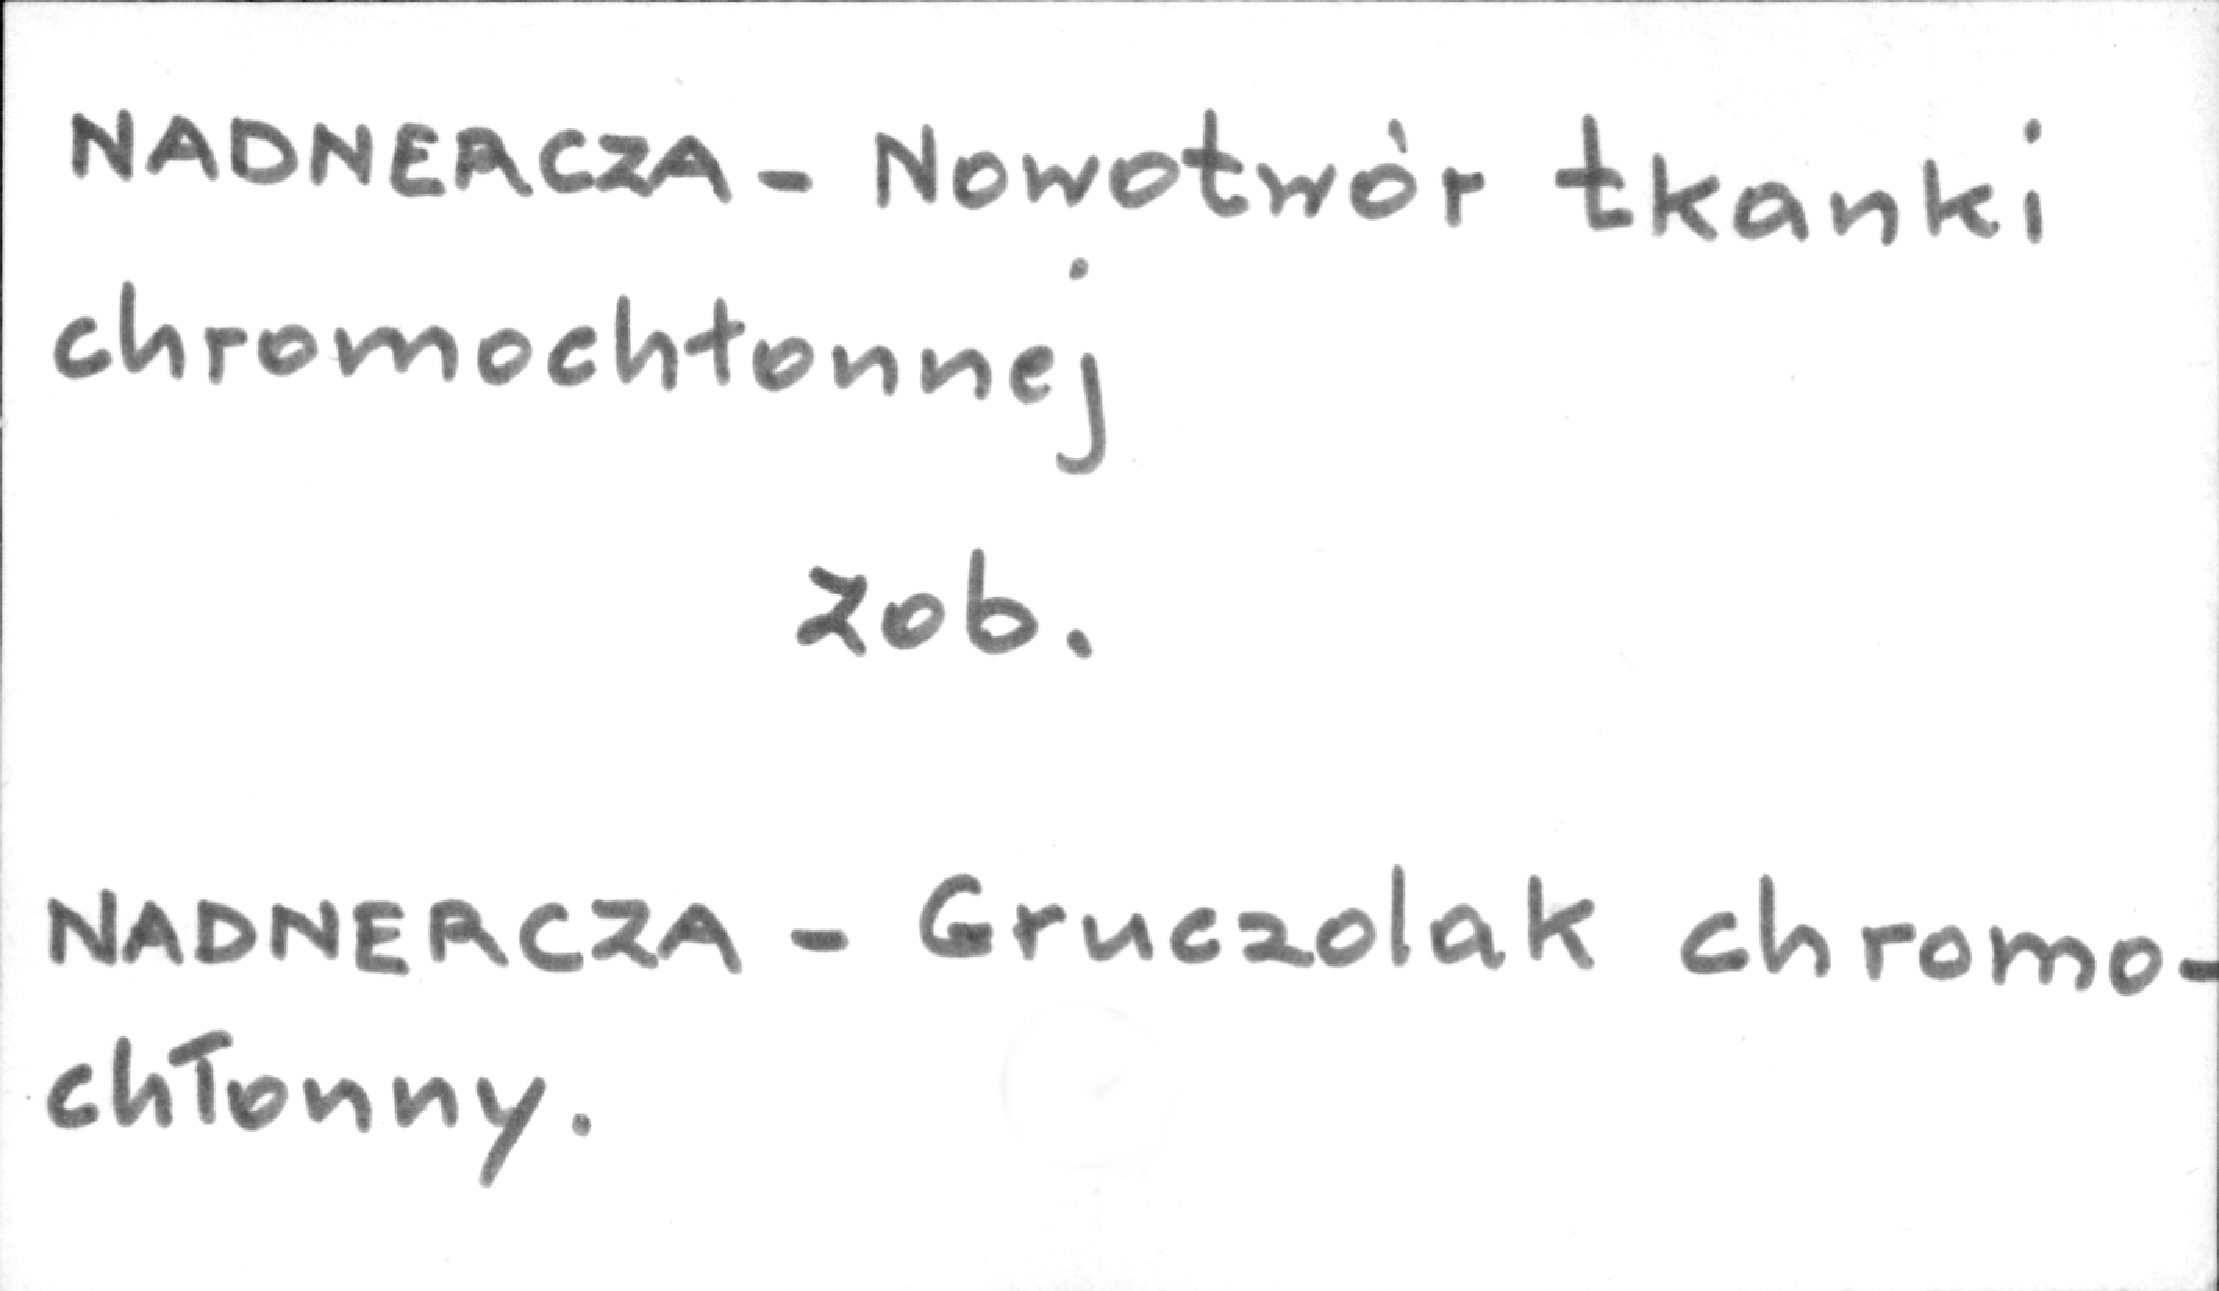 NADNERCZA - Nowotwór tkanki
chromochłonnej
zob.
NADNERCZA - Gruczolak chromo-
chłonny.